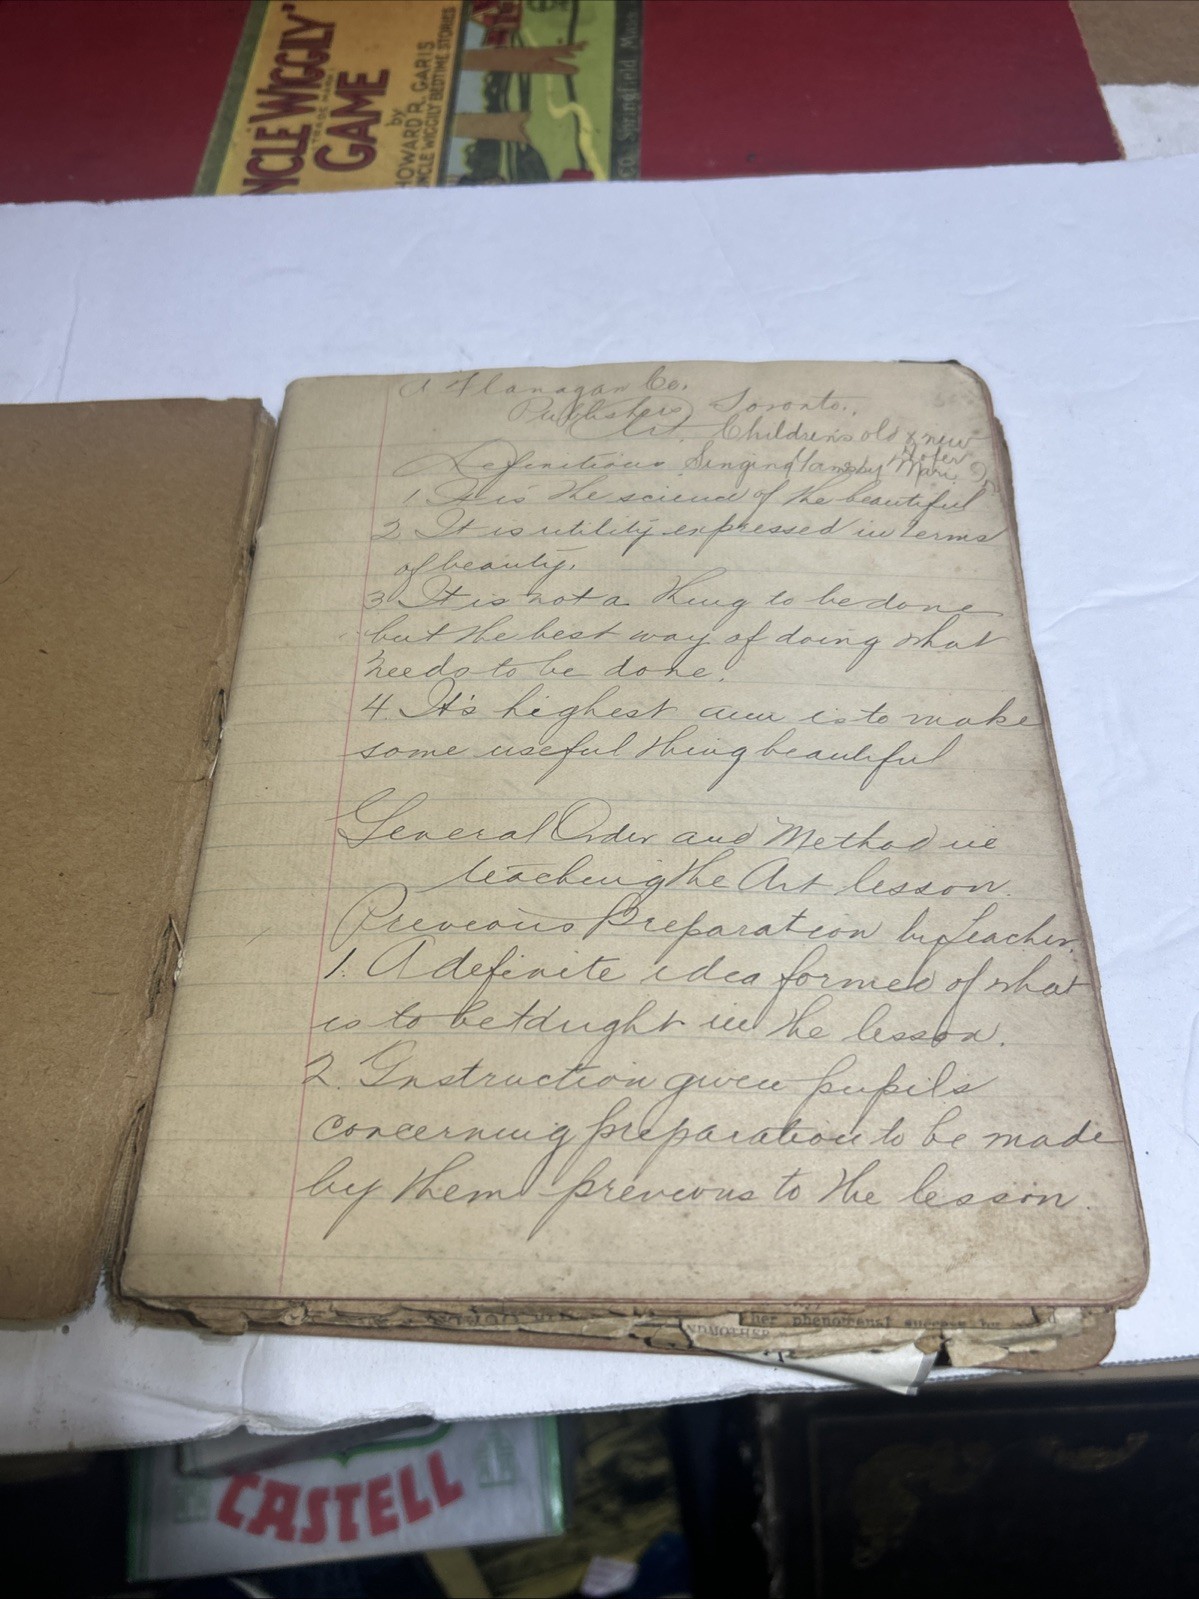 NCLE WIGGILY'
TRADE MARK
GAME
by
HOWARD R. GARIS
UNCLE WIGGILY BEDTIME STORIES
Co. Springfield Mass
A Flanagan Co.
Publishers Toronto.
Art. Children's old & new
Definitions Singing Games by Mari
1. It is the science of the beautiful
2. It is utility expressed in terms
of beauty.
3. It is not a thing to be done
but the best way of doing what
needs to be done.
4. It's highest aim is to make
some useful thing beautiful
General Order and Method in
teaching the Art lesson.
Previous Preparation by Teacher.
1. A definite idea formed of what
is to be taught in the lesson.
2. Instruction given pupils
concerning preparation to be made
by them previous to the lesson.
her phenomenal success by
NDMOTHER
CASTELL